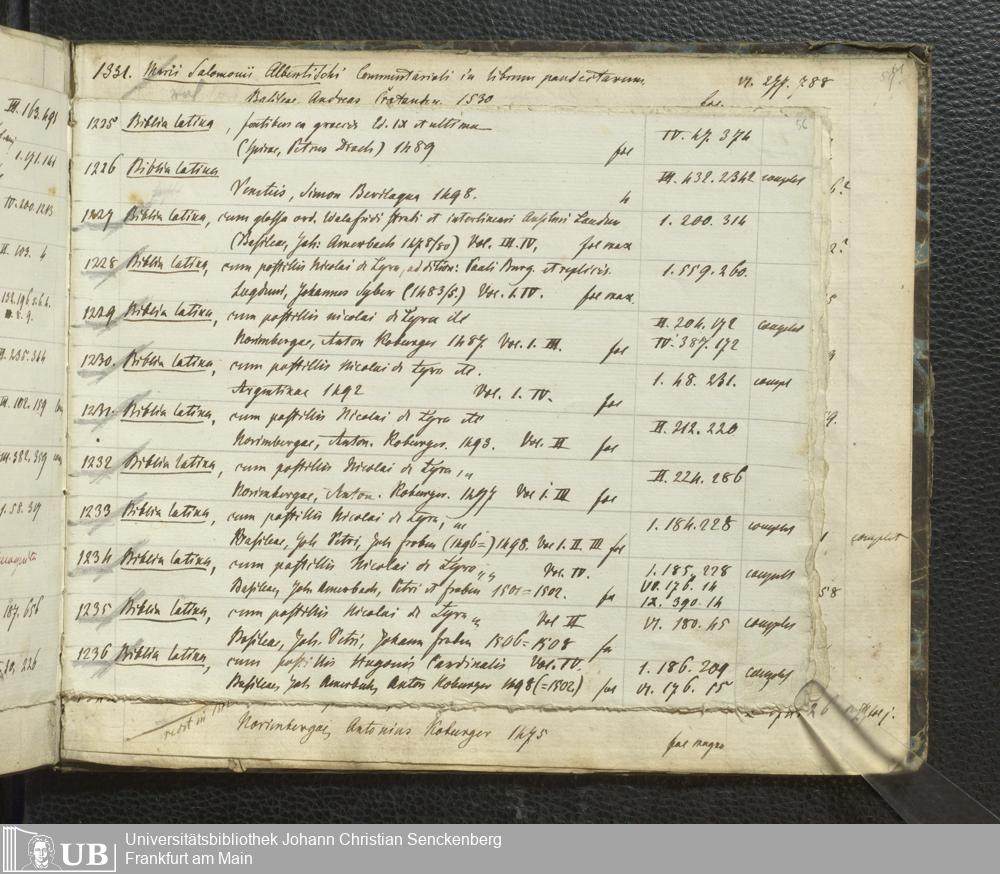 1331. Marii Salomonii Albertischi Commentarioli in librum pandectarum VI. 277. 788
Basileae Andreas Cratander 1530 fos.
56
1225 Biblia latina, fontibus ex graecis Ed. IX et ultima IV. 47. 374
(Spirae, Petrus Drach) 1489 fos
1226 Biblia latina III. 432. 2342 complet
Venetiis, Simon Bevilaqua 1498. 4
1227 Biblia latina, cum glossa ord. Walafridi Strabi et interlineari Anselmi Laudun 1. 200. 314
(Basileae, Joh: Amerbach 1478/80) Vol. III. IV, fos max
1228 Biblia latina, cum postillis Nicolai di Lyra, addition: Pauli Burg. et replicis 1. 559. 260.
Lugduni, Johannes Syber (1483/5.) Vol. I. IV. fos max.
1229 Biblia latina, cum postillis nicolai di Lyra etc II. 204. 172 complet
Norimbergae, Anton Koburger 1487. Vol. I. III. fos IV. 387. 172
1230. Biblia latina, cum postillis Nicolai di Lyra etc. 1. 48. 231. compl
Argentinae 1492 Vol. I. IV. fos
1231. Biblia latina, cum postillis Nicolai di Lyra etc II. 212. 220
Norimbergae, Anton. Koburger. 1493. Vol. II fos
1232 Biblia latina, cum postillis Nicolai di Lyra, „ II. 224. 286
Norimbergae, Anton. Koburger. 1497 Vol I. III fos
1233 Biblia latina, cum postillis Nicolai di Lyra, „ 1. 184. 228 complet
Basileae, Joh Petri, Joh froben (1496=) 1498. Vol I. II. III fos
1234 Biblia latina, cum postillis Nicolai di Lyra „ „ Vol. IV. 1. 185. 228 complet
Basileae, Joh Amerbach, Petri et froben 1501=1502. fo VI. 176. 14
IX. 390. 14
1235 Biblia latina, cum postillis Nicolai di Lyra „ Vol II VI. 180. 45 complet
Basileae, Joh. Petri, Johann froben 1506=1508 fos
1236 Biblia latina, cum postillis Hugonis Cardinalis Vol. IV. 1. 186. 209 complet
Basileae, Joh Amerbach, Anton Koburger 1498 (=1502) fos VI. 176. 15
Norimbergae, Antonius Koburger 1475 fos magno
III. 163. 491
1. 171. 141
IV. 200. 1213
II. 103. 4
II. 235. 344
III. 102. 159
III. 382. 319
1. 58. 319
187. 656
complet
58
UB
Universitätsbibliothek Johann Christian Senckenberg
Frankfurt am Main